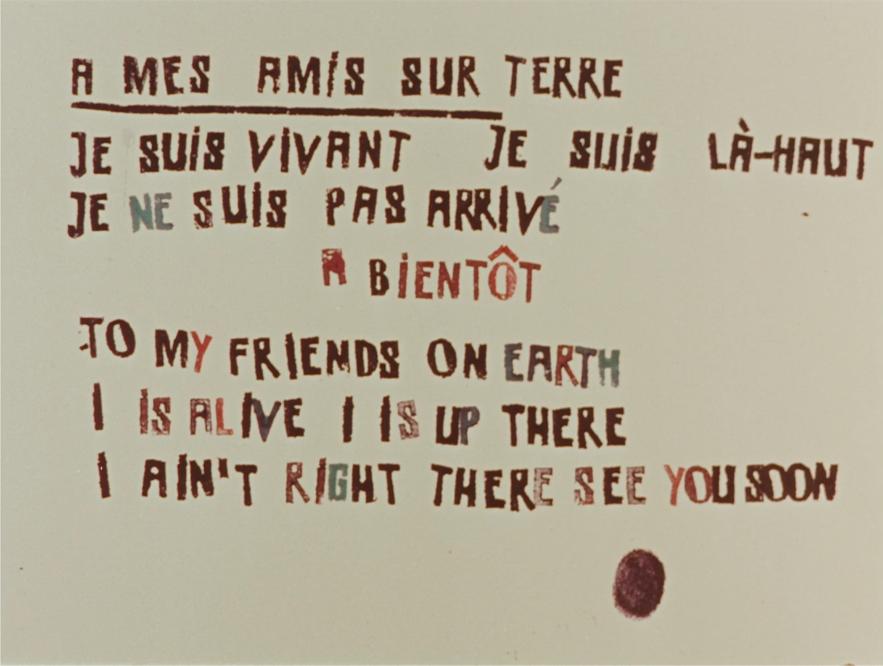 A MES AMiS SUR TERRE
JE SUiS ViVANT JE SUiS LÀ-HAUT
JE NE SUiS PAS ARRIVÉ
A BiENTÔT
TO MY FRIENDS ON EARTH
I iS ALIVE I IS UP THERE
I AIN'T RIGHT THERE SEE YOU SOON